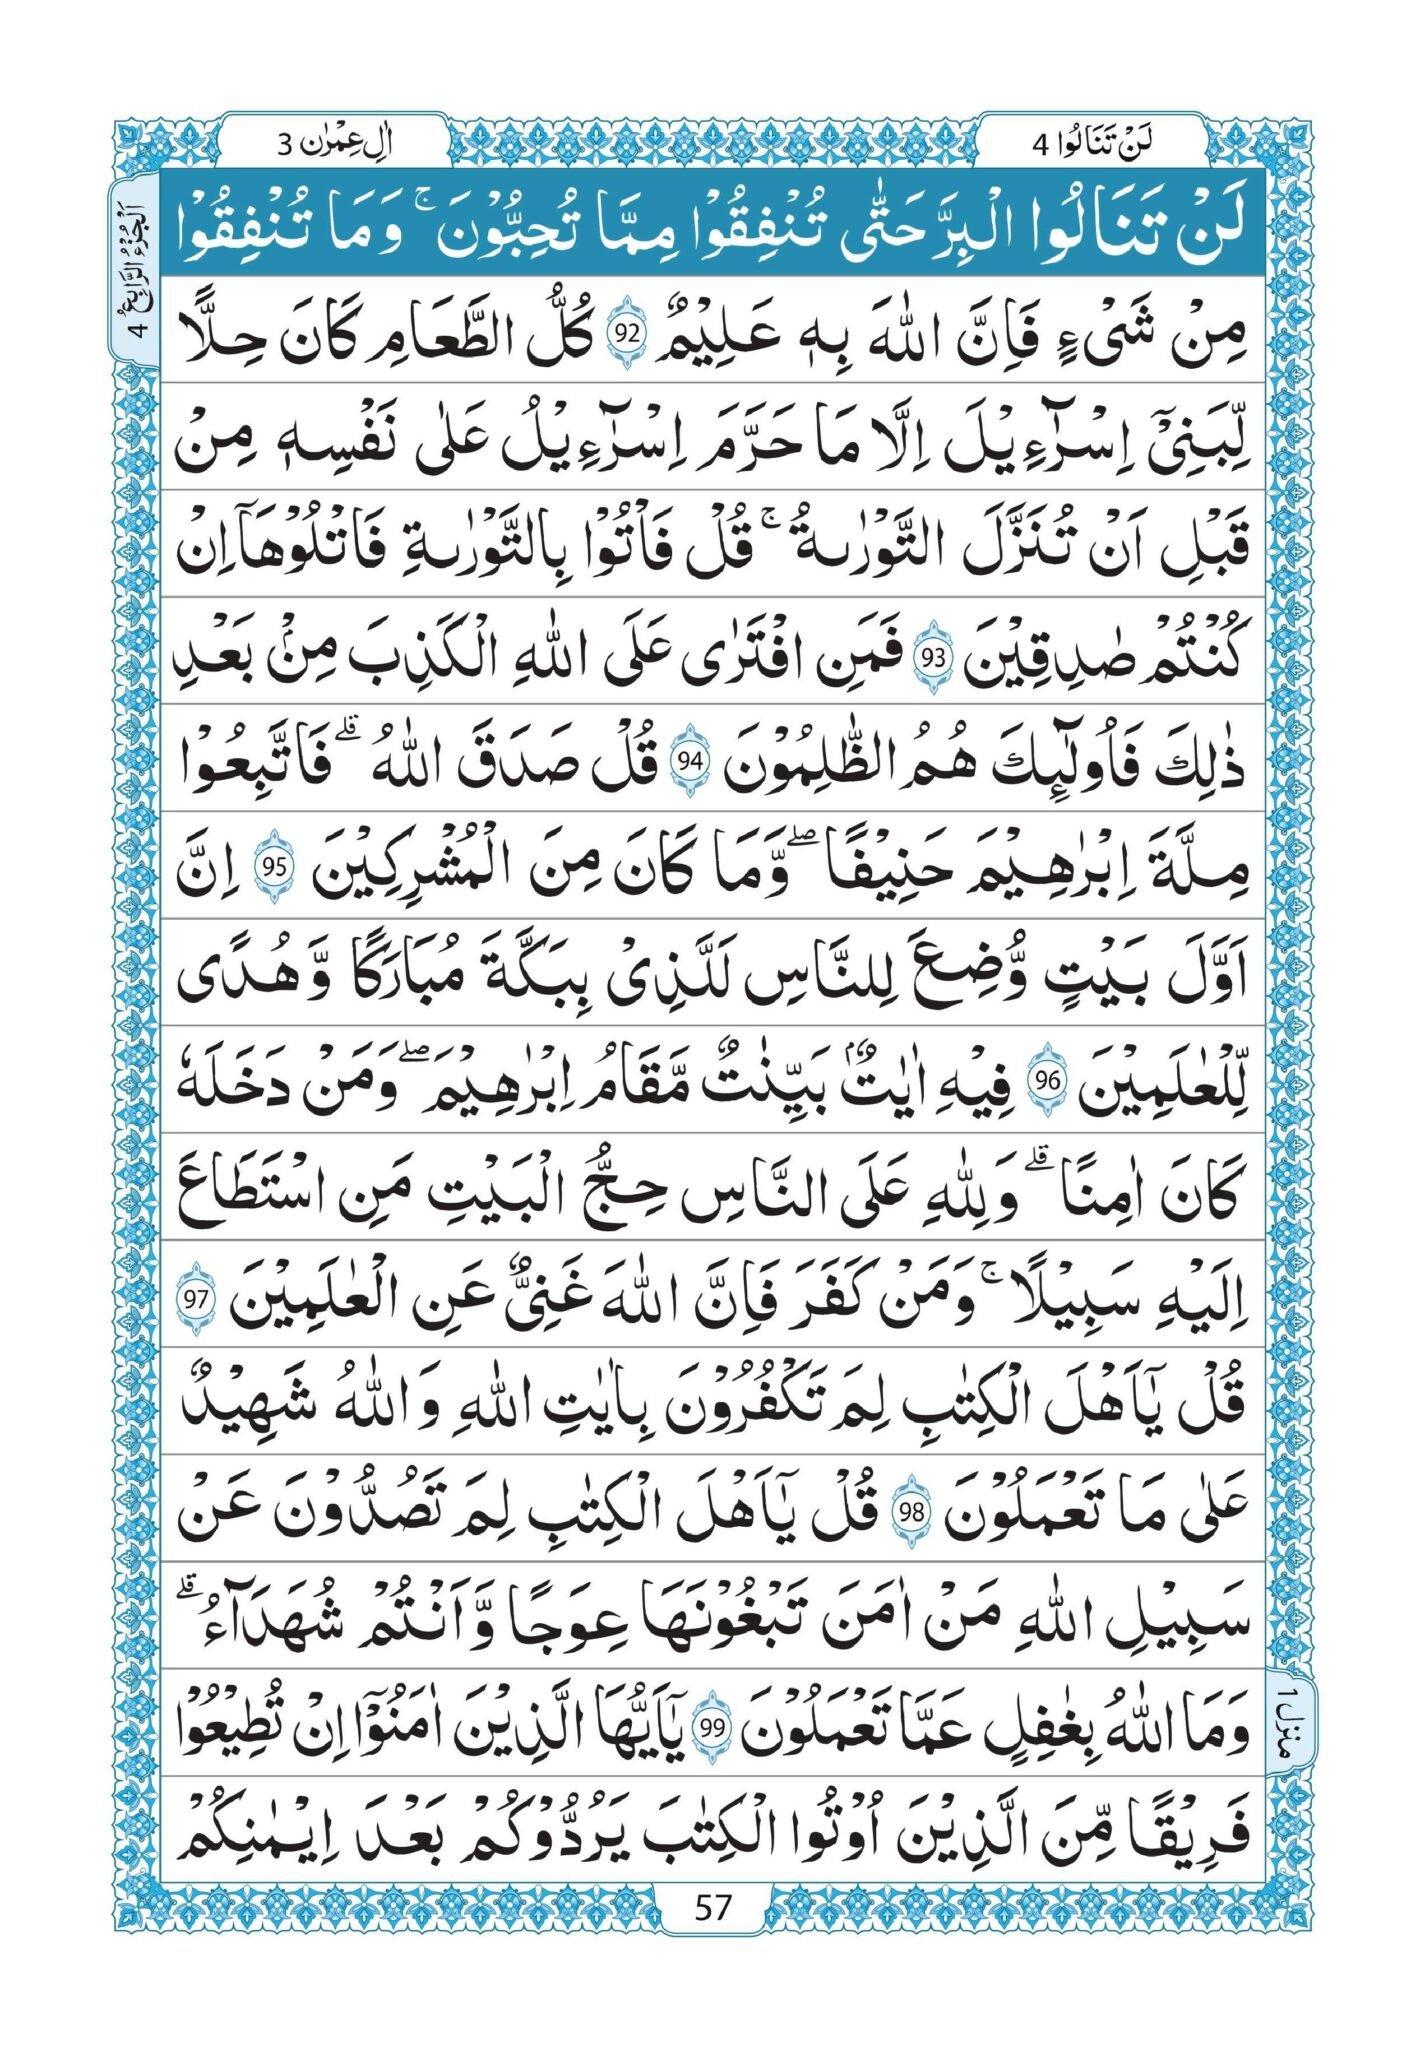 لَنْ تَنَالُوا 4
اٰلِ عِمْرٰن 3
اَلْجُزْءُ الرَّابِعُ 4
لَنْ تَنَالُوا الْبِرَّ حَتّٰى تُنْفِقُوْا مِمَّا تُحِبُّوْنَ ۚ وَمَا تُنْفِقُوْا
مِنْ شَیْءٍ فَاِنَّ اللّٰهَ بِهٖ عَلِیْمٌ 92 كُلُّ الطَّعَامِ كَانَ حِلًّا
لِّبَنِیْۤ اِسْرَآءِیْلَ اِلَّا مَا حَرَّمَ اِسْرَآءِیْلُ عَلٰى نَفْسِهٖ مِنْ
قَبْلِ اَنْ تُنَزَّلَ التَّوْرٰىةُ ۚ قُلْ فَاْتُوْا بِالتَّوْرٰىةِ فَاتْلُوْهَاۤ اِنْ
كُنْتُمْ صٰدِقِیْنَ 93 فَمَنِ افْتَرٰى عَلَى اللّٰهِ الْكَذِبَ مِنْۢ بَعْدِ
ذٰلِكَ فَاُولٰٓىِٕكَ هُمُ الظّٰلِمُوْنَ 94 قُلْ صَدَقَ اللّٰهُ ۗ فَاتَّبِعُوْا
مِلَّةَ اِبْرٰهِیْمَ حَنِیْفًا ۖ وَّمَا كَانَ مِنَ الْمُشْرِكِیْنَ 95 اِنَّ
اَوَّلَ بَیْتٍ وُّضِعَ لِلنَّاسِ لَلَّذِیْ بِبَكَّةَ مُبَارَكًا وَّهُدًى
لِّلْعٰلَمِیْنَ 96 فِیْهِ اٰیٰتٌۢ بَیِّنٰتٌ مَّقَامُ اِبْرٰهِیْمَ ۖ وَمَنْ دَخَلَهٗ
كَانَ اٰمِنًا ۗ وَلِلّٰهِ عَلَى النَّاسِ حِجُّ الْبَیْتِ مَنِ اسْتَطَاعَ
اِلَیْهِ سَبِیْلًا ۚ وَمَنْ كَفَرَ فَاِنَّ اللّٰهَ غَنِیٌّ عَنِ الْعٰلَمِیْنَ 97
قُلْ یٰۤاَهْلَ الْكِتٰبِ لِمَ تَكْفُرُوْنَ بِاٰیٰتِ اللّٰهِ وَاللّٰهُ شَهِیْدٌ
عَلٰى مَا تَعْمَلُوْنَ 98 قُلْ یٰۤاَهْلَ الْكِتٰبِ لِمَ تَصُدُّوْنَ عَنْ
سَبِیْلِ اللّٰهِ مَنْ اٰمَنَ تَبْغُوْنَهَا عِوَجًا وَّاَنْتُمْ شُهَدَآءُ ۗ
وَمَا اللّٰهُ بِغٰفِلٍ عَمَّا تَعْمَلُوْنَ 99 یٰۤاَیُّهَا الَّذِیْنَ اٰمَنُوْۤا اِنْ تُطِیْعُوْا
فَرِیْقًا مِّنَ الَّذِیْنَ اُوْتُوا الْكِتٰبَ یَرُدُّوْكُمْ بَعْدَ اِیْمٰنِكُمْ
منزل 1
57